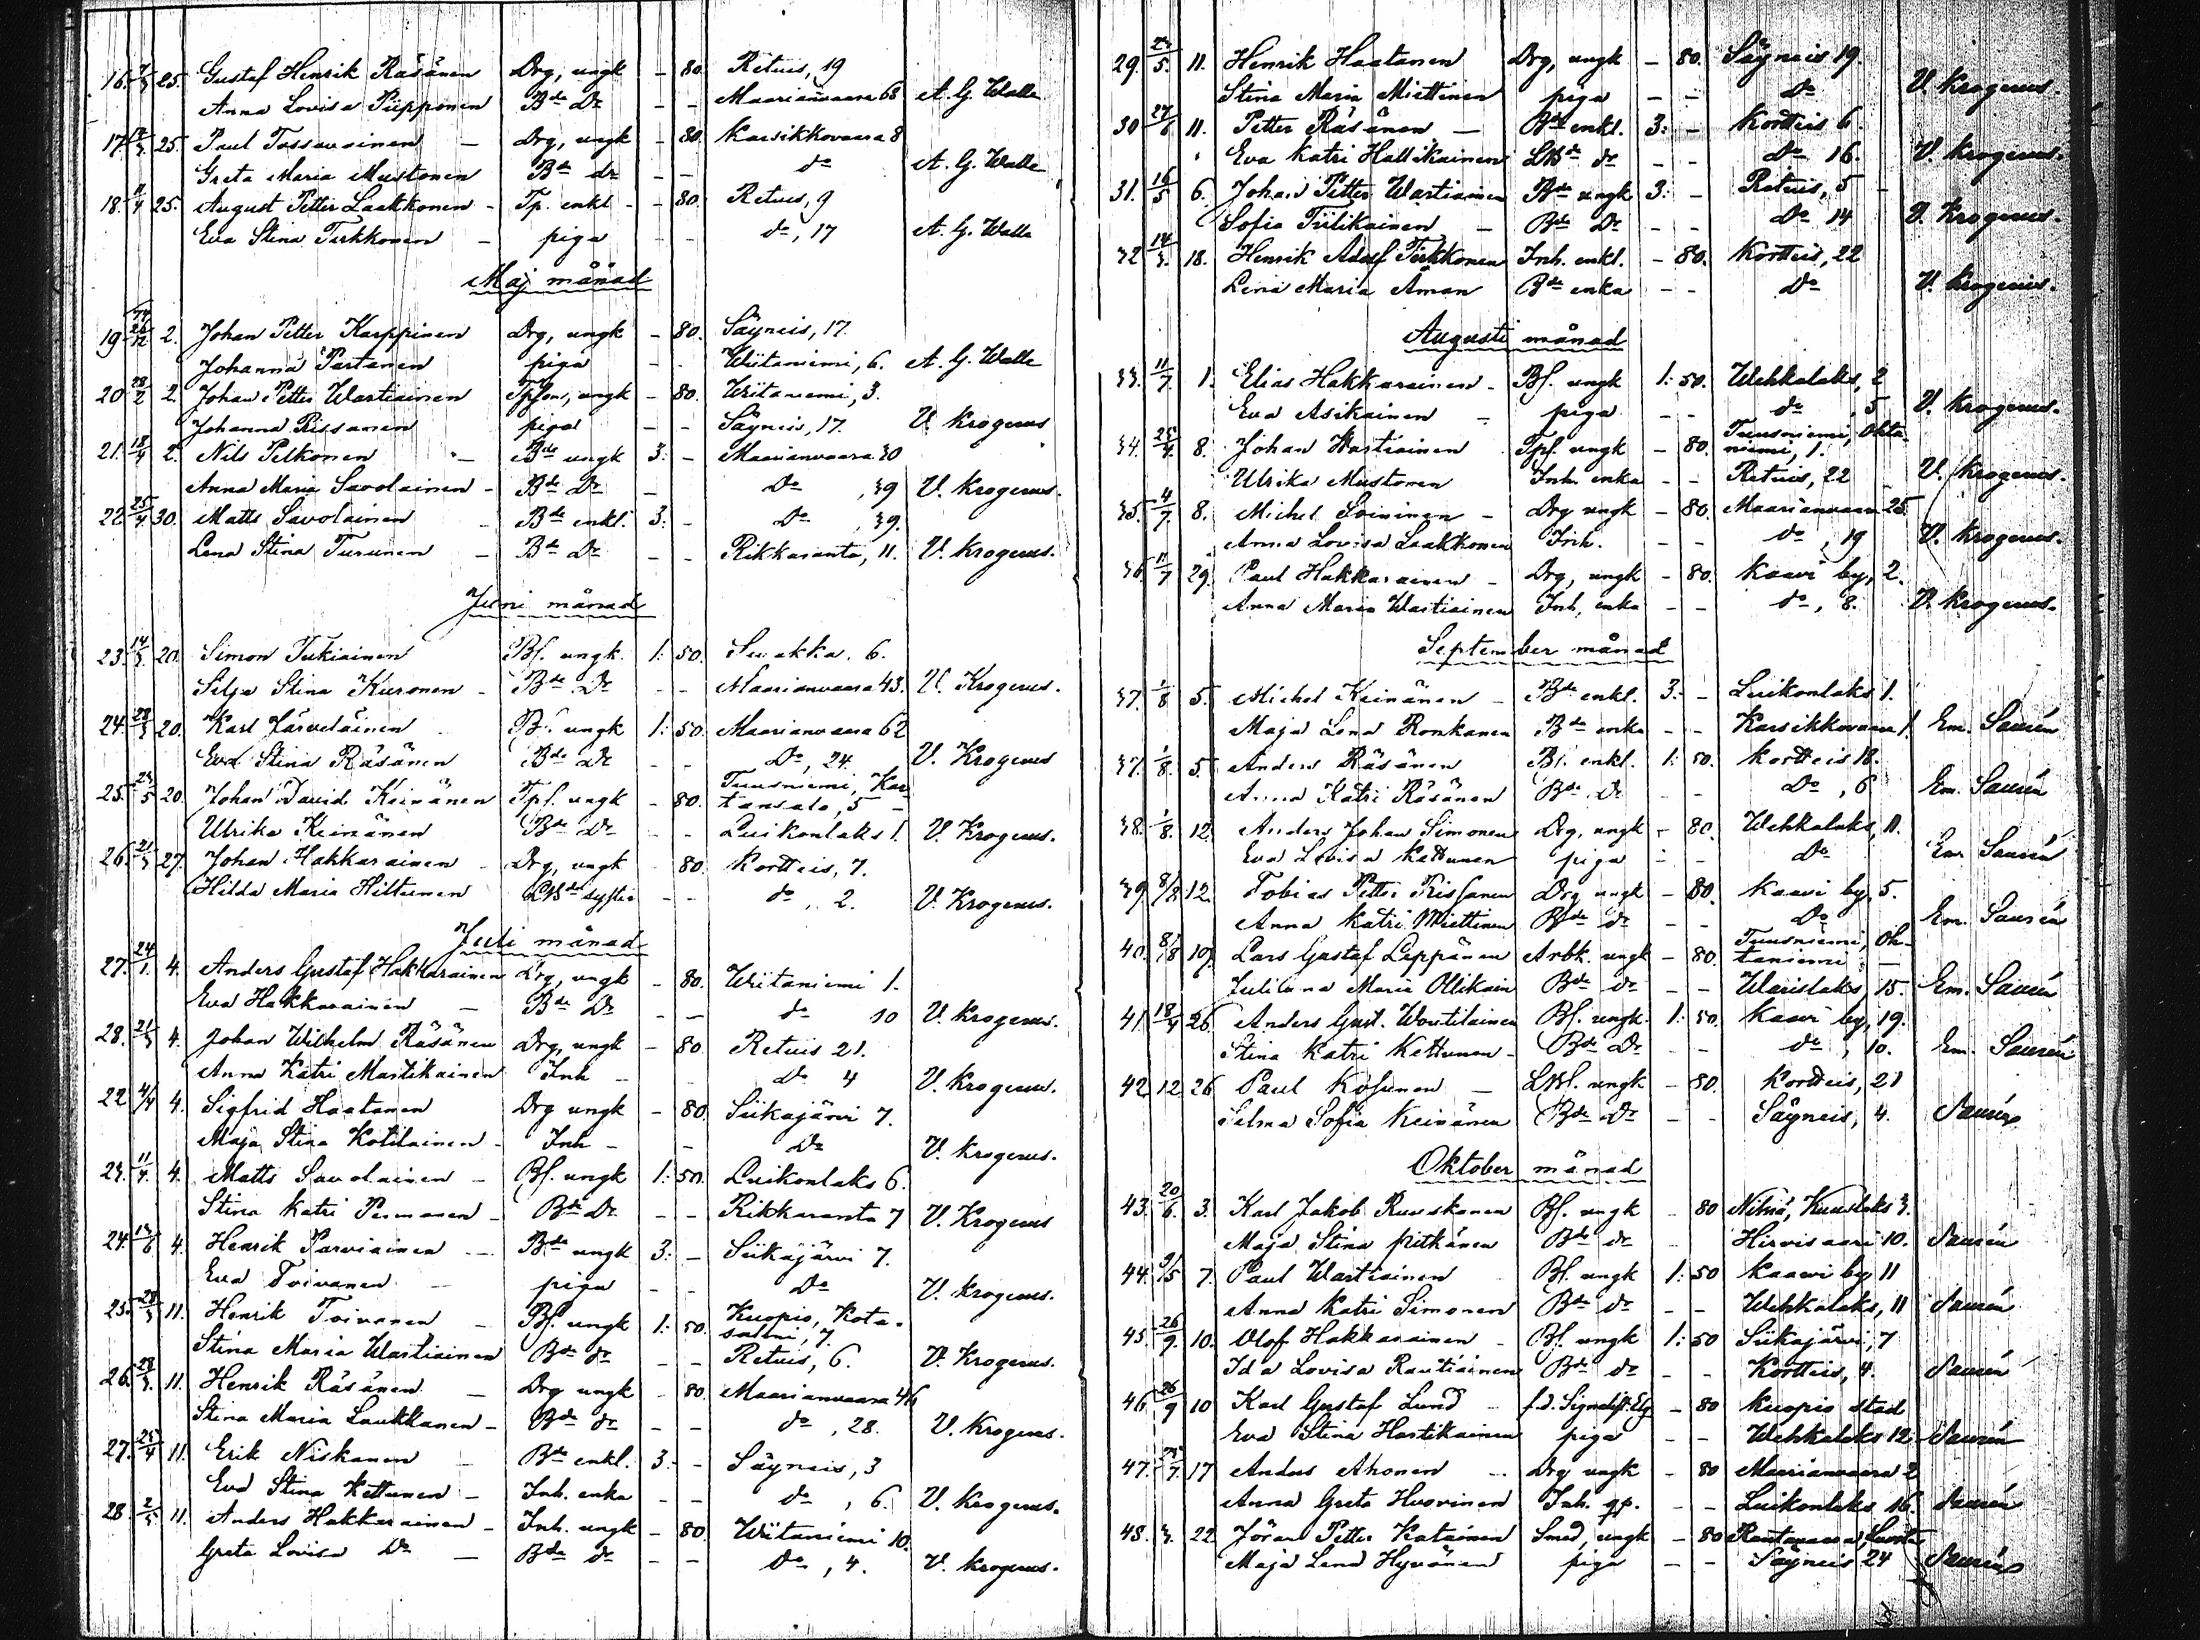 16. 25. Gustaf Henrik Räsänen Drg, ungk - 80. Retuis, 19
Anna Lovisa Piipponen Bde Do - - Maarianvaara 68 A. G. Walle
17. 25. Paul Tossavainen - Drg, ungk - 80. Karsikkovaara 8
Greta Maria Mustonen Bde do - - do A. G. Walle
18. 25. August Petter Laakkonen - Tp. enkl - - 80. Retuis, 9
Eva Stina Tirkkonen - piga - - do, 17 A. G. Walle
Maj månad
19 2. Johan Petter Karppinen Drg, ungk - 80. Säyneis, 17.
Johanna Partanen piga - - Wiitaniemi, 6. A. G. Walle
20 2. Johan Petter Wartiainen ungk - 80. Wiitaniemi, 3.
Johanna Rissanen piga - - Säyneis, 17. V. Krogerus
21. 18/4 2. Nils Pelkonen - Bde ungk 3: - Maarianvaara 30
Anna Maria Savolainen - Bde Do - Do, 39 V. Krogerus.
22 25/4 30. Matts Savolainen Bde enkl. 3: - Do, 39.
Lena Stina Turunen - Bde Do - - Rikkaranta, 11. V. Krogerus.
Juni månad
23. 20. Simon Tukiainen Bf. ungk. 1: 50. Suakka. 6.
Silja Stina Kuronen - Bde Do - - Maarianvaara 43. V. Krogerus.
24. 20. Karl Järveläinen Bf. ungk 1: 50. Maarianvaara 62
Eva Stina Räsänen Bde do - - Do, 24. V. Krogerus
25. 20. Johan David Keinänen Tpf. ungk - 80. Tuusniemi, Kar
tansalo, 5 -
Ulrika Keinänen Bde Do - - Luikonlaks 1. V. Krogerus.
26. 27. Johan Hakkarainen - Drg, ungk 80. Kortteis, 7.
Hilda Maria Hiltunen - - do, 2. V. Krogerus.
Juli månad
27. 24/1. 4. Anders Gustaf Hakkarainen Drg, ungk - 80. Wiitaniemi 1.
Eva Hakkarainen - Bde Do - - do 10 V. Krogerus.
28. 4. Johan Wilhelm Räsänen Drg, ungk - 80. Retuis 21.
Anna Katri Martikainen Inh - - do 4 V. Krogerus.
22 4/4 4. Sigfrid Haatanen Drg ungk - 80. Siikajärvi 7.
Maja Stina Kotilainen - Inh - - Do V. Krogerus.
23. 4. Matts Savolainen - Bf. ungk 1: 50. Luikonlaks 6.
Stina Katri Permanen - Bde Do - - Rikkaranta 7 V. Krogerus
24. 4. Henrik Parviainen - Bde ungk 3: - Siikajärvi 7.
Eva Toivanen - piga - - Do V. Krogerus.
25. 11. Henrik Toivanen - Bf. ungk 1: 50. Kuopio, Kota-
salmi, 7.
Stina Maria Wartiainen Bde do - - Retuis, 6. V. Krogerus.
26. 11. Henrik Räsänen - Drg ungk - 80. Maarianvaara 46
Stina Maria Laukkanen - Bde do - - do, 28. V. Krogerus.
27. 11. Erik Niskanen - Bde enkl. 3: - Säyneis, 3
Eva Stina Kettunen - Inh. enka - - do, 6. V. Krogerus.
28. 11. Anders Hakkarainen - Inh. ungk - 80. Wiitaniemi 10.
Greta Lovisa Do - Bde do - - do, 4. V. Krogerus.
29. 11. Henrik Haatanen Drg, ungk - 80. Säyneis 19
Stina Maria Miettinen piga - - Do V. Krogerus.
30 11. Petter Räsänen - Bde enkl. 3: - Kortteis 6.
Eva Katri Hallikainen LBde do - - Do 16. V. Krogerus.
31. 16/5 6. Johan Petter Wartiainen Bde ungk 3: - Retuis, 5 -
Sofia Tiilikainen - Bde Do - - Do 14 V. Krogerus.
32 18. Henrik Adolf Tirkkonen Inh. enkl. - 80. Kortteis, 22
Lena Maria Åman Bde enka - - Do V. Krogerus.
Augusti månad
33. 11/7. 1. Elias Hakkarainen - Bf. ungk 1: 50. Wehkalaks, 2
Eva Asikainen - piga - - do, 5 V. Krogerus.
34. 8. Johan Wartiainen Tpf. ungk - 80. Tuusniemi,
niemi, 1.
Ulrika Mustonen Inh. enka - - Retuis, 22 V. Krogerus.
35. 4/7. 8. Michel Soininen - Drg ungk - 80. Maarianvaara 25
Anna Lovisa Laakkonen Inh. - - do, 19 V. Krogerus.
36 11/7 29. Paul Hakkarainen - Drg, ungk - 80. Kaavi by, 2.
Anna Maria Wartiainen Inh, enka - - do, 8. V. Krogerus.
September månad
37. 1/8 5. Michel Keinänen - Bde enkl. 3: - Luikonlaks 1.
Maja Lena Ronkanen Bde enka - - Karsikkovaara 1. Em. Saurén
37. 1/8. 5. Anders Räsänen Bf. enkl. 1: 50. Kortteis 18.
Anna Katri Räsänen Bde do - - Do, 6 Em. Saurén
38. 1/8. 12. Anders Johan Simonen Drg, ungk - 80. Wehkalaks, 11.
Eva Lovisa Kettunen piga - - do Em Saurén
39 8/8 12. Tobias Petter Rissanen Drg ungk - 80. Kaavi by, 5.
Anna Katri Miettinen Bde do - - Do Em. Saurén
40. 8/8 19. Lars Gustaf Leppänen Arbk. ungk - 80. Tuusniemi, Oh-
taniemi, -
Juliana Maria Ollikain Bde do - - Warislaks, 15. Em. Saurén
41. 18/4 26. Anders Gust. Woutilainen Bf. ungk. 1: 50. Kaavi by, 19.
Stina Katri Kettunen - Bde Do - - do, 10. Em. Saurén
42 12 26 Paul Kosunen - LBf. ungk - 80. Kortteis, 21
Selma Sofia Keinänen Bde Do - - Säyneis, 4. Saurén
Oktober månad
43. 20/6. 3. Karl Jakob Ruuskanen Bf. ungk - 80 Nilsiä, Kuuslaks 3.
Maja Stina Pitkänen Bde do - Hirvisaari 10. Saurén
44. 9/5 7. Paul Wartiainen Bf. ungk 1: 50 Kaavi by 11
Anna Katri Simonen Bde do - - Wehkalaks, 11 Saurén
45. 26/9. 10. Olof Hakkarainen - Bf. ungk 1: 50 Siikajärvi, 7
Ida Lovisa Rautiainen Bde do - - Kortteis, 4. Saurén
46 26/9 10 Karl Gustaf Lund - f.d. - 80 Kuopio stad
Eva Stina Hartikainen piga - - Wehkalaks 12 Saurén
47. 17 Anders Ahonen - Drg ungk - 80 Maarianvaara 2
Anna Greta Huovinen Inh. - - Luikonlaks 16. Saurén
48. 22 Jöran Petter Katainen Smed, ungk - 80 Rautavaara,
Maja Lena Hyvönen piga - - Säyneis 24 Saurén